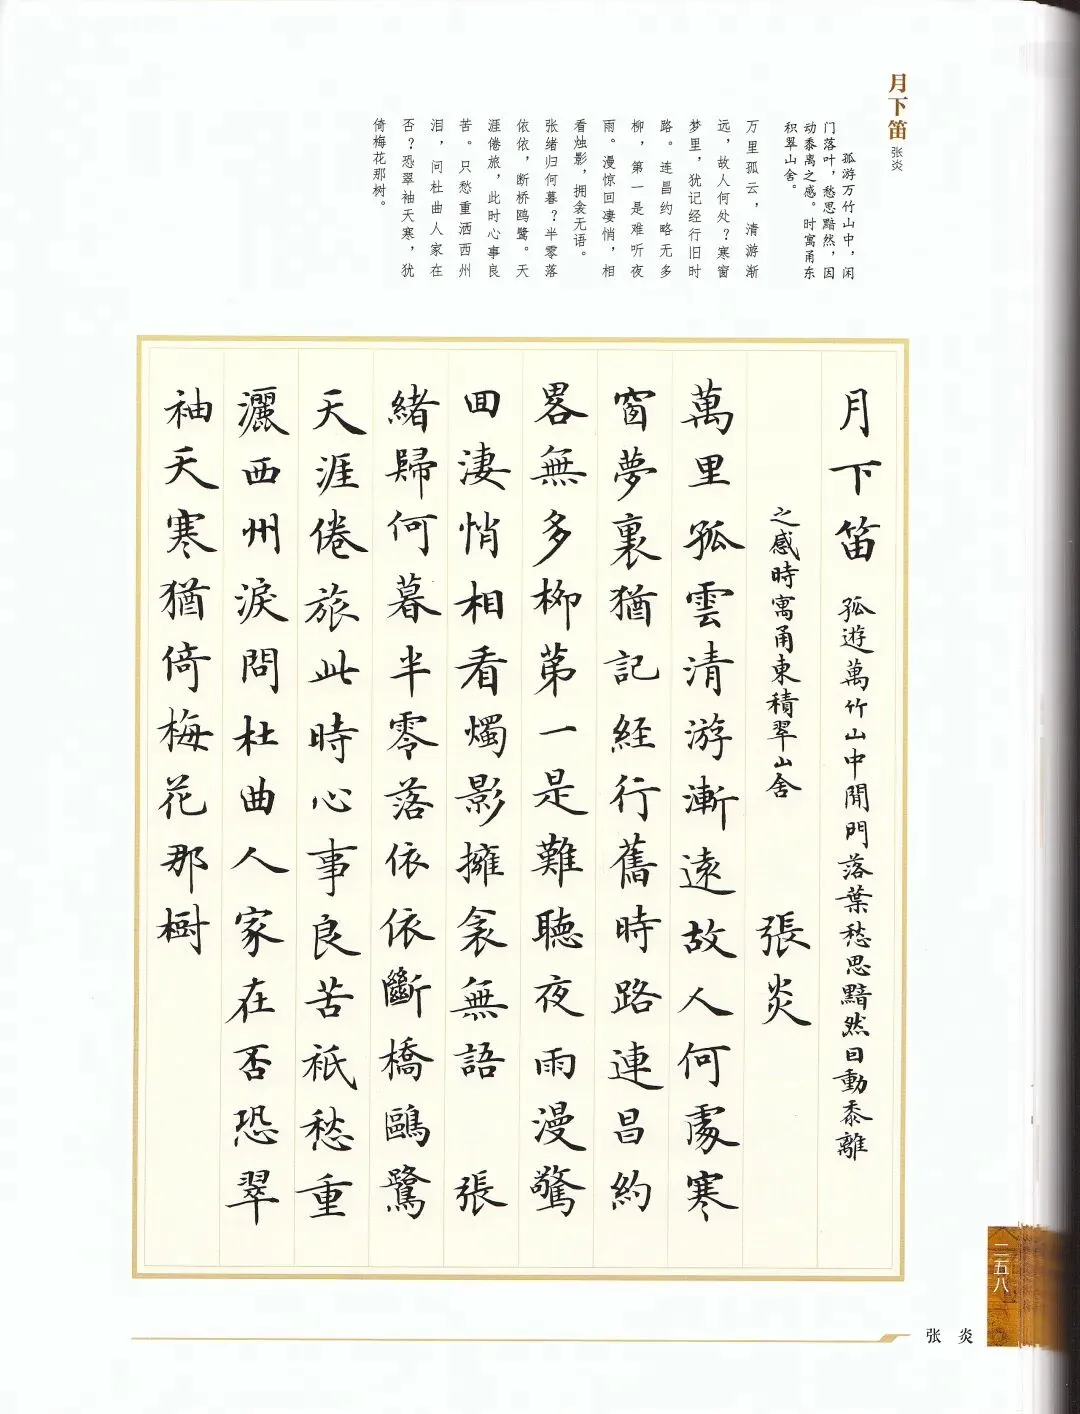 月下笛 张炎
孤游万竹山中，闲
门落叶，愁思黯然，因
动黍离之感。时寓甬东
积翠山舍。
万里孤云，清游渐
远，故人何处？寒窗
梦里，犹记经行旧时
路。连昌约略无多
柳，第一是难听夜
雨。漫惊回凄悄，相
看烛影，拥衾无语。
张绪归何暮？半零落
依依，断桥鸥鹭。天
涯倦旅，此时心事良
苦。只愁重洒西州
泪，问杜曲人家在
否？恐翠袖天寒，犹
倚梅花那树。
月下笛 孤遊萬竹山中閒門落葉愁思黯然因動黍離
之感時寓甬東積翠山舍 張炎
萬里孤雲清游漸遠故人何處寒
窗夢裏猶記經行舊時路連昌約
畧無多柳第一是難聽夜雨漫驚
回淒悄相看燭影擁衾無語 張
緒歸何暮半零落依依斷橋鷗鷺
天涯倦旅此時心事良苦祇愁重
灑西州淚問杜曲人家在否恐翠
袖天寒猶倚梅花那樹
二五八
张炎